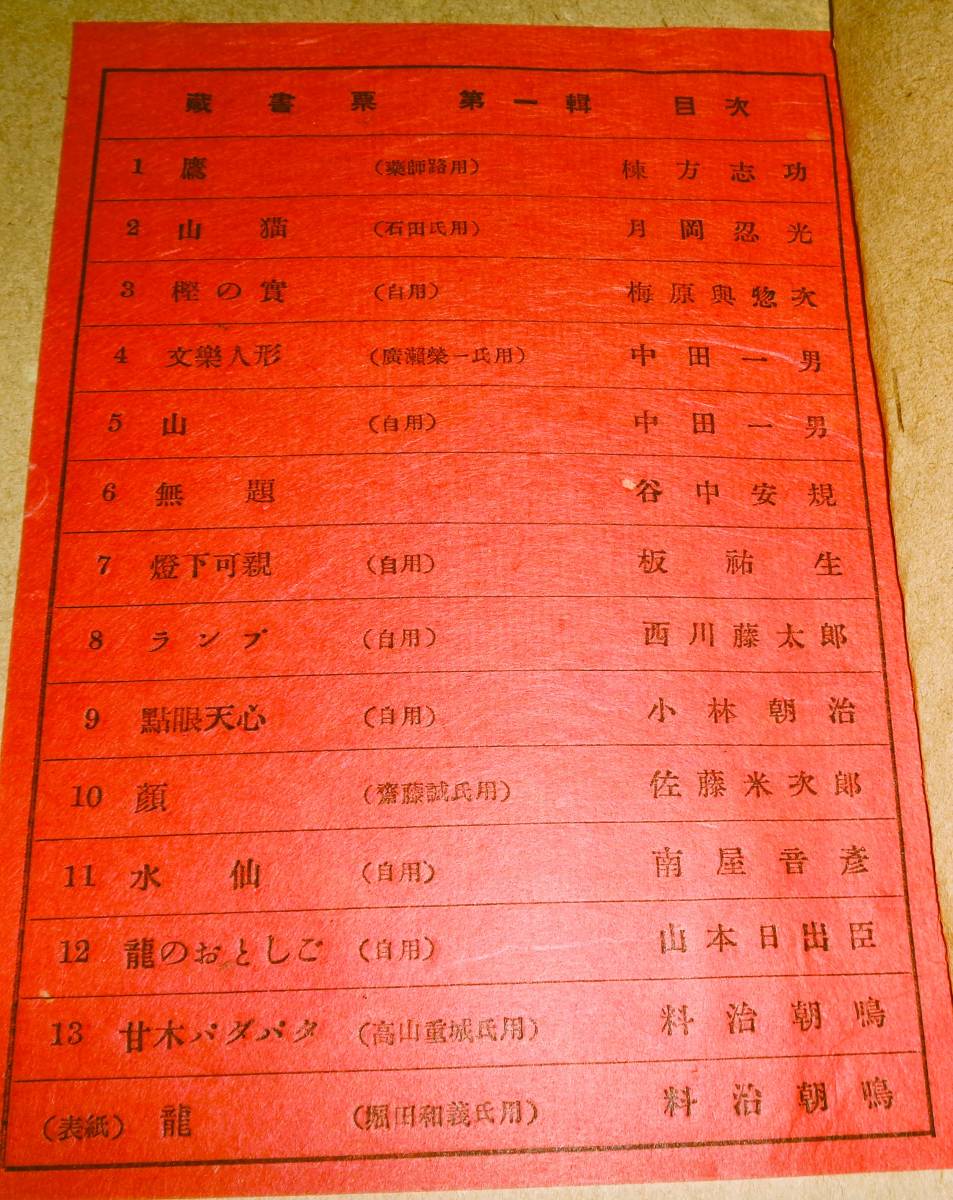 藏書票 第一輯 目次
1 鷹 (藥師路用) 棟方志功
2 山猫 (石田氏用) 月岡忍光
3 樫の實 (自用) 梅原與惣次
4 文樂人形 (廣瀨榮一氏用) 中田一男
5 山 (自用) 中田一男
6 無題 谷中安規
7 燈下可親 (自用) 板祐生
8 ランプ (自用) 西川藤太郎
9 點眼天心 (自用) 小林朝治
10 顏 (齋藤誠氏用) 佐藤米次郎
11 水仙 (自用) 南屋音彥
12 龍のおとしご (自用) 山本日出臣
13 甘木バタバタ (高山重城氏用) 料治朝鳴
(表紙) 龍 (堀田和義氏用) 料治朝鳴